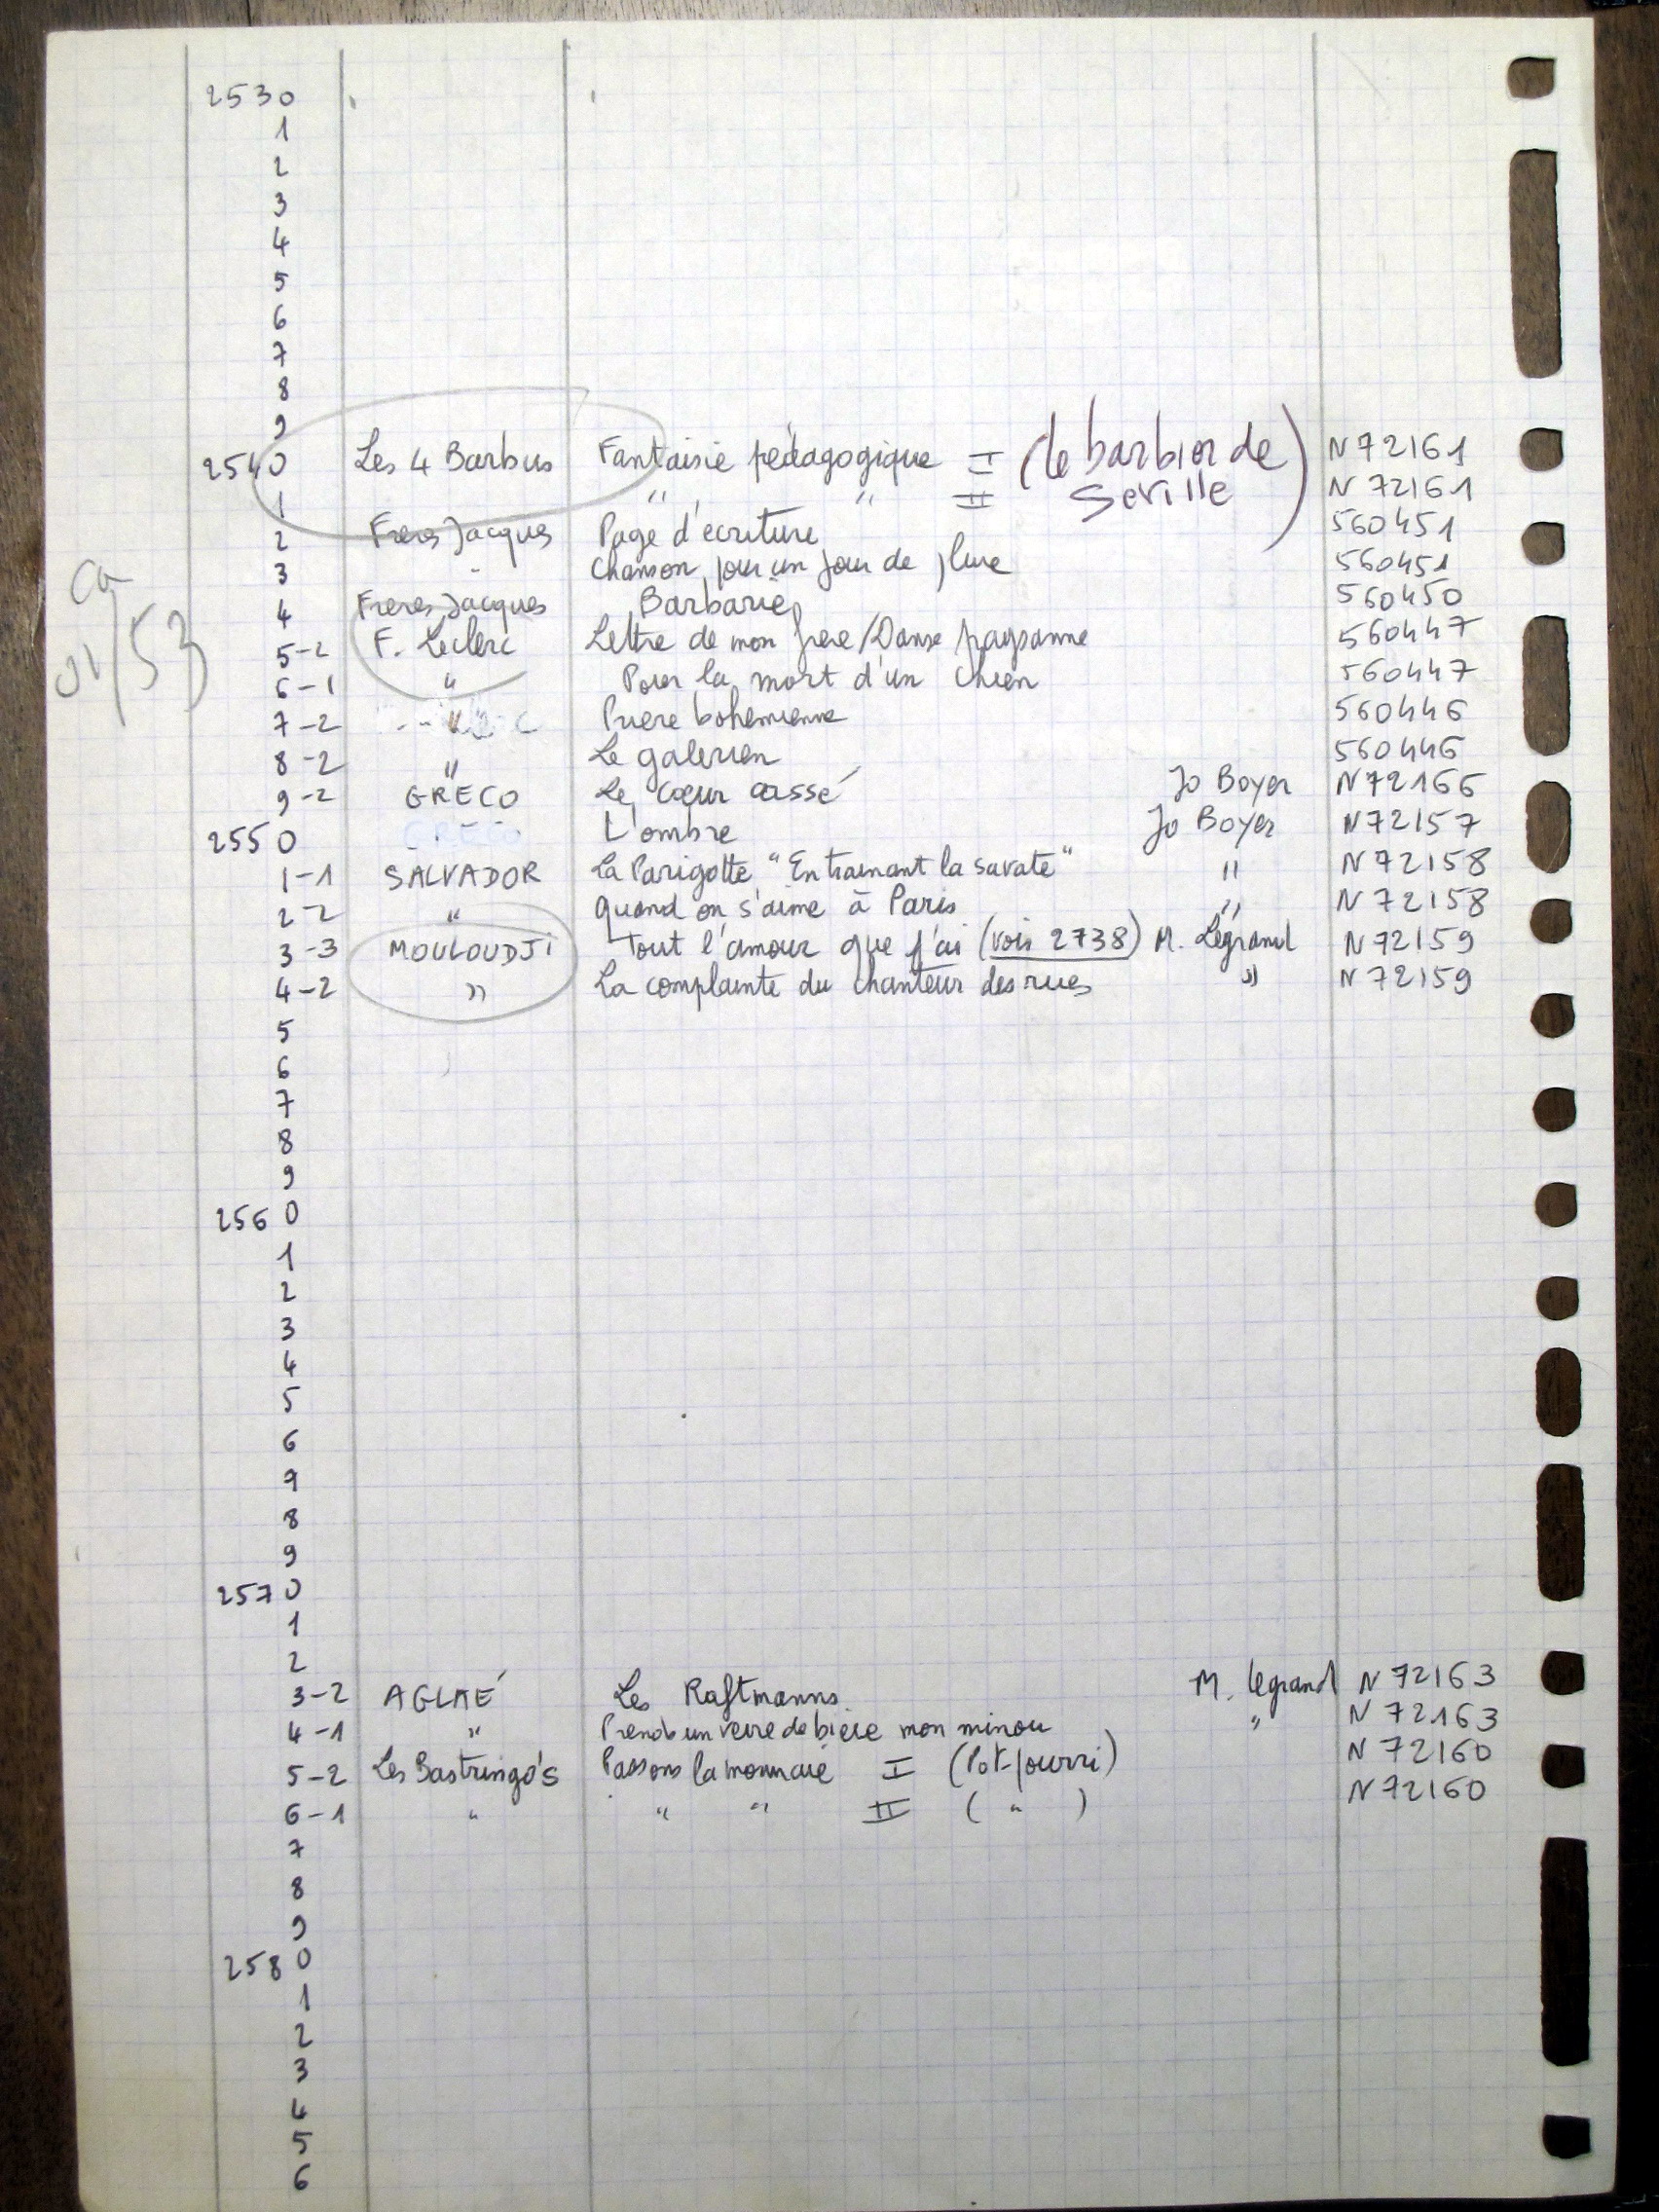 2530
1
2
3
4
5
6
7
8
9
2540 Les 4 Barbus Fantaisie pédagogique I (le barbier de Seville) N 72161
1 " " II N 72161
2 Freres Jacques Page d'ecriture 560451
3 " Chanson pour un jour de pluie 560451
4 Freres Jacques Barbarie 560450
5-2 F. Leclerc Lettre de mon frere/Danse paysanne 560447
6-1 " Pour la mort d'un chien 560447
7-2 " Priere bohemienne 560446
8-2 " Le galerien 560446
9-2 GRECO Le coeur cassé Jo Boyer N72166
2550 GRECO L'ombre Jo Boyer N72157
1-1 SALVADOR La Parigotte "En trainant la savate" " N72158
2-2 " Quand on s'aime à Paris " N 72158
3-3 MOULOUDJI Tout l'amour que j'ai (vois 2738) M. Legrand N72159
4-2 " La complainte du chanteur des rues " N 72159
5
6
7
8
9
2560
1
2
3
4
5
6
7
8
9
2570
1
2
3-2 AGLAÉ Les Raftmanns M. Legrand N 72163
4-1 " Prends un verre de biere mon minou " N 72163
5-2 Les Bastringo's Passons la monnaie I (Pot-pourri) N 72160
6-1 " " " II ( " ) N72160
7
8
9
2580
1
2
3
4
5
6
ca
01/53